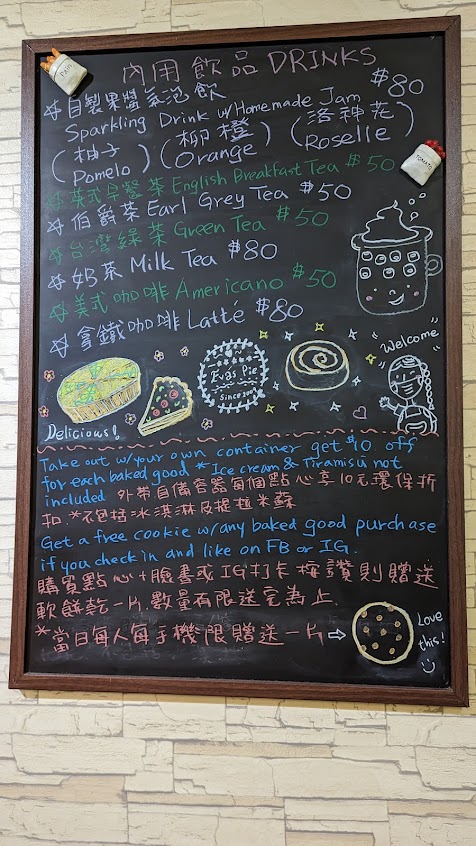 內用飲品 DRINKS
自製果醬氣泡飲 $80
Sparkling Drink w/Homemade Jam
(柚子 Pomelo) (柳橙 Orange) (洛神花 Roselle)
英式早餐茶 English Breakfast Tea $50
伯爵茶 Earl Grey Tea $50
台灣綠茶 Green Tea $50
奶茶 Milk Tea $80
美式咖啡 Americano $50
拿鐵咖啡 Latté $80
PAIN
TOMATO
Welcome
Eva's Pie
Since
Delicious!
Take out w/your own container get $10 off
for each baked good *Ice cream & Tiramisu not
included 外帶自備容器每個點心享10元環保折
扣 *不包括冰淇淋及提拉米蘇
Get a free cookie w/any baked good purchase
if you check in and like on FB or IG.
購買點心+臉書或IG打卡按讚則贈送
軟餅乾一片.數量有限送完為止
*當日每人每手機限贈送一片⇨
Love
this!